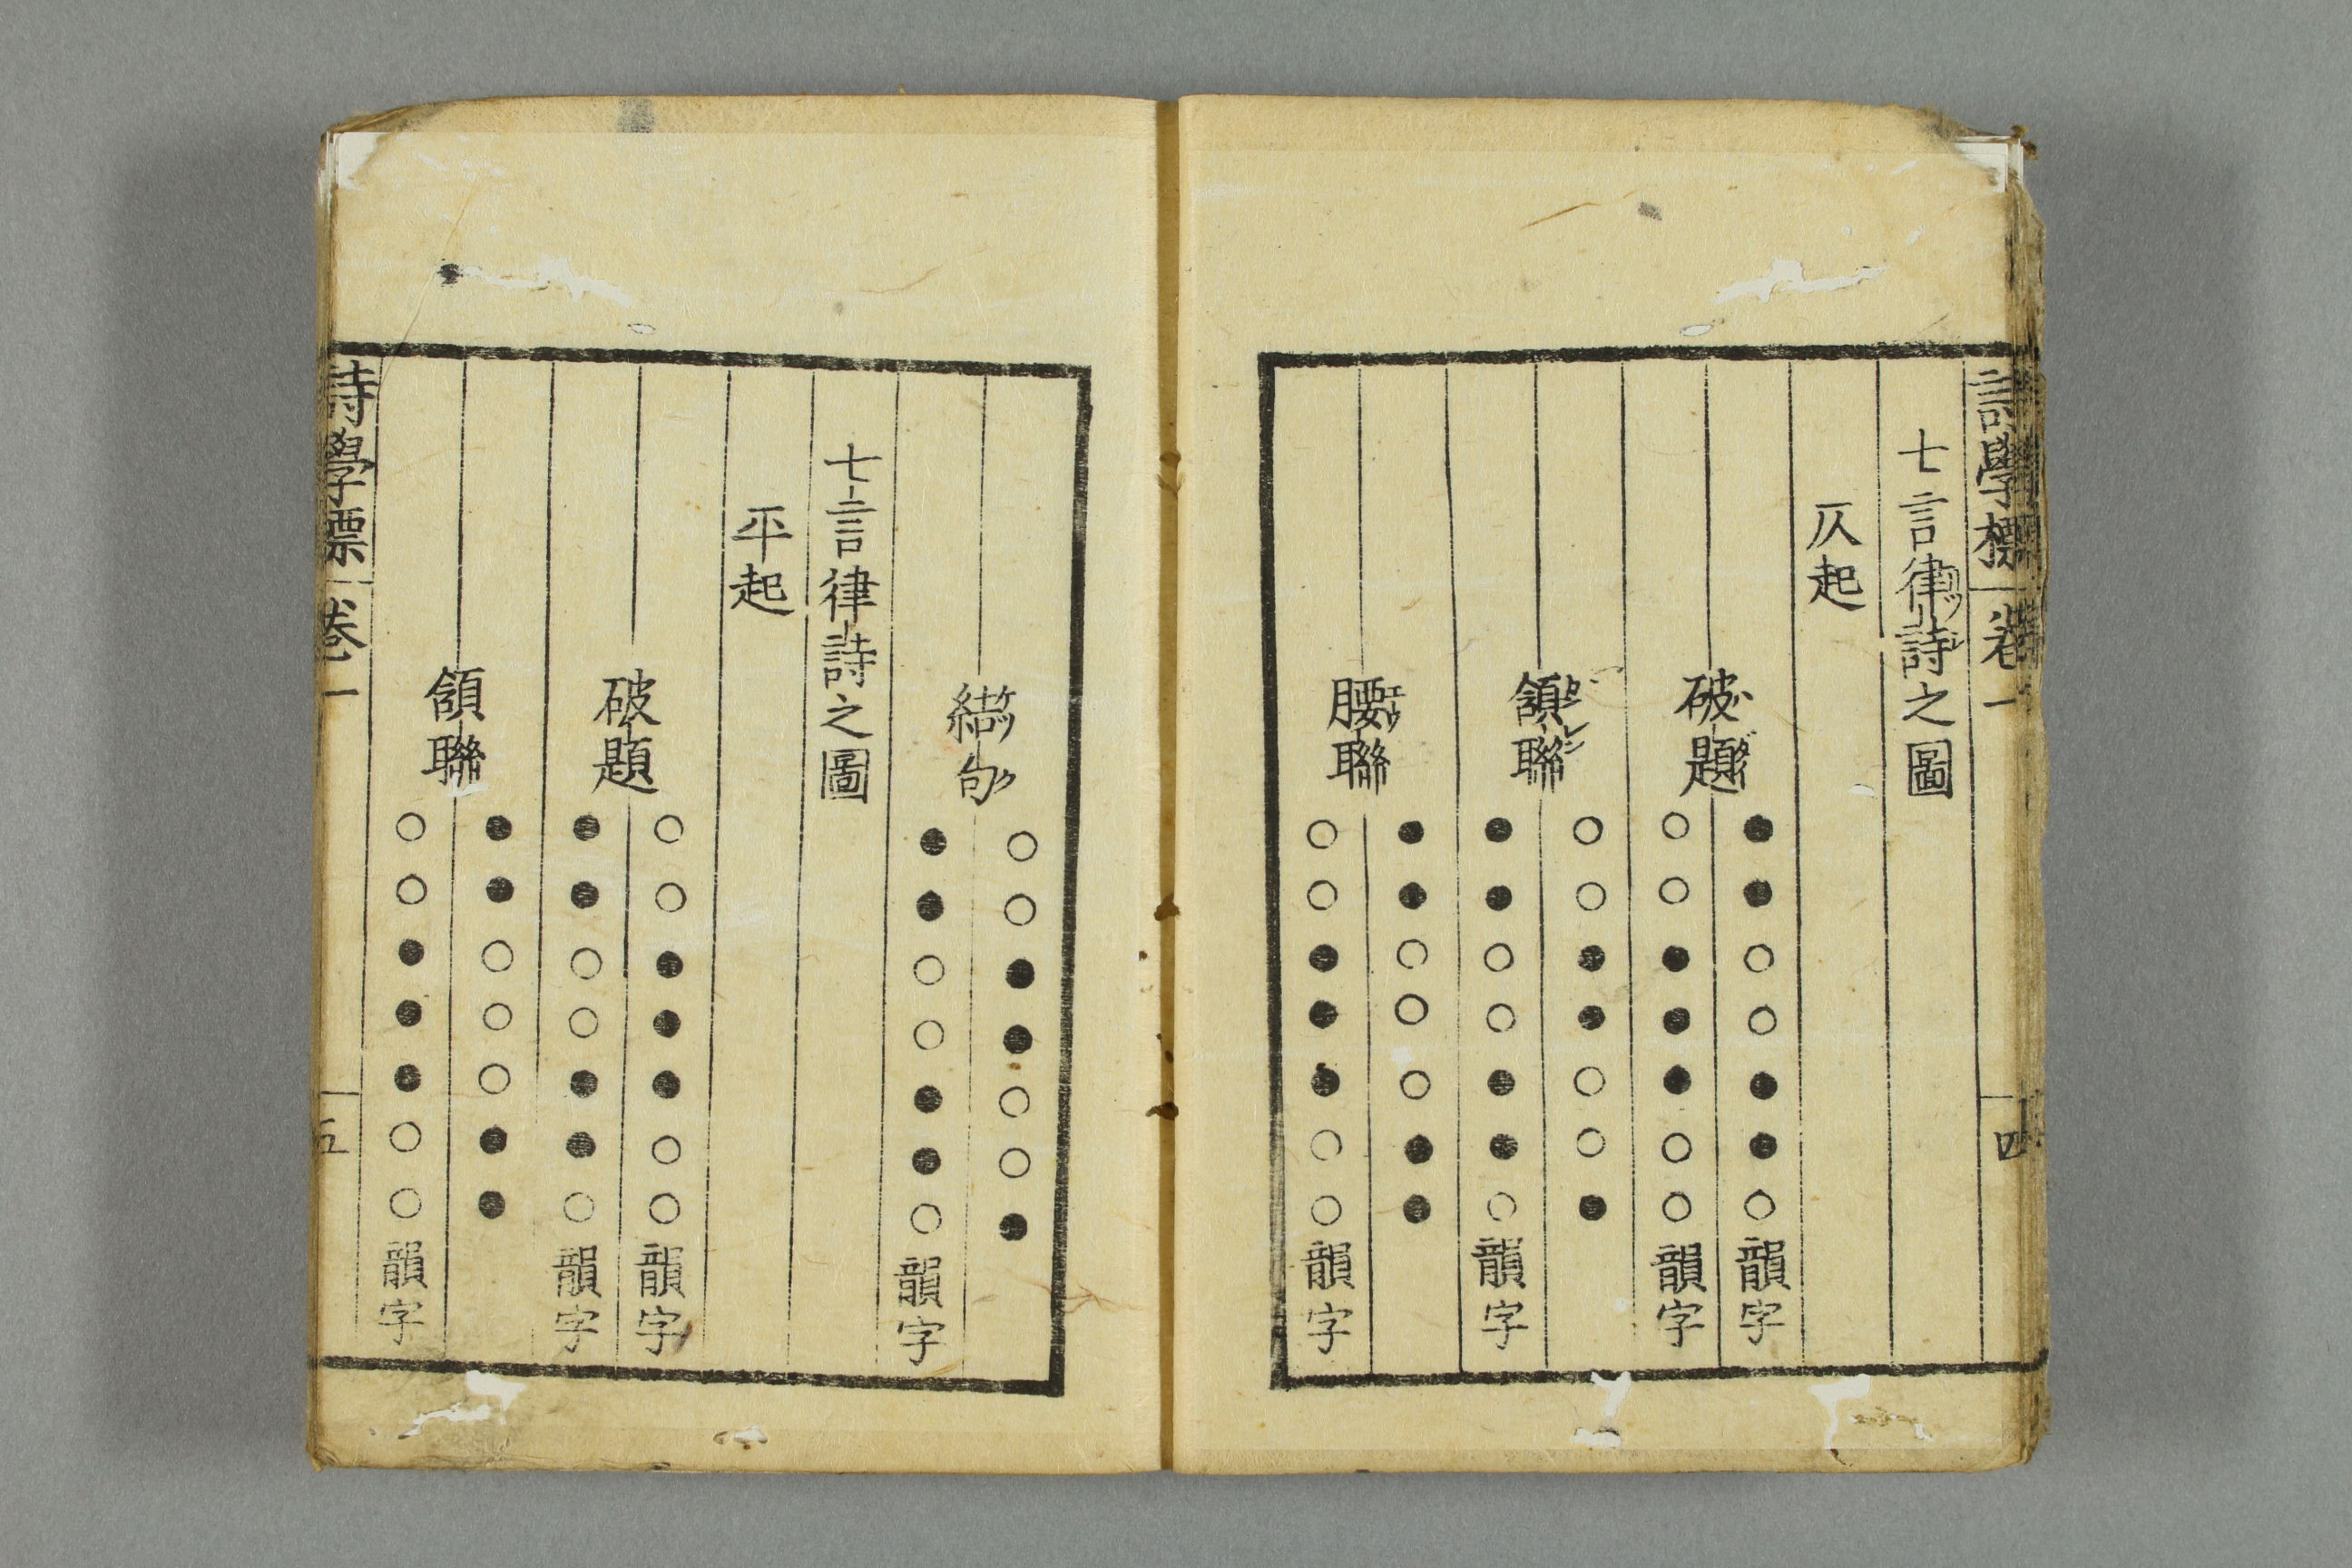 詩學標 卷一 四
七言律詩之圖
仄起
破題
●●○○●●○韻字
○○●●●○○韻字
頷聯
○○●●○○●
●●○○●●○韻字
腰聯
●●○○○●●
○○●●●○○韻字
結句
○○●●○○●
●●○○●●○韻字
七言律詩之圖
平起
破題
○○●●●○○韻字
●●○○●●○韻字
頷聯
●●○○○●●
○○●●●○○韻字
詩學標 卷一 五